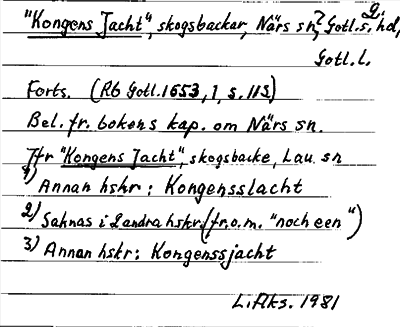 "Kongens Jacht", skogsbackar, Närs sn, Gotl. s. hd,
Gotl. l.
Forts. (Rb Gotl. 1653, 1, s. 113)
Bel. fr. bokens kap. om Närs sn.
Jfr "Kongens Jacht", skogsbacke, Lau sn
1) Annan hskr: Kongenslacht
2) Saknas i 2 andra hskr. (fr.o.m. "noch een")
3) Annan hskr: Kongenssjacht
Li. Aks. 1981